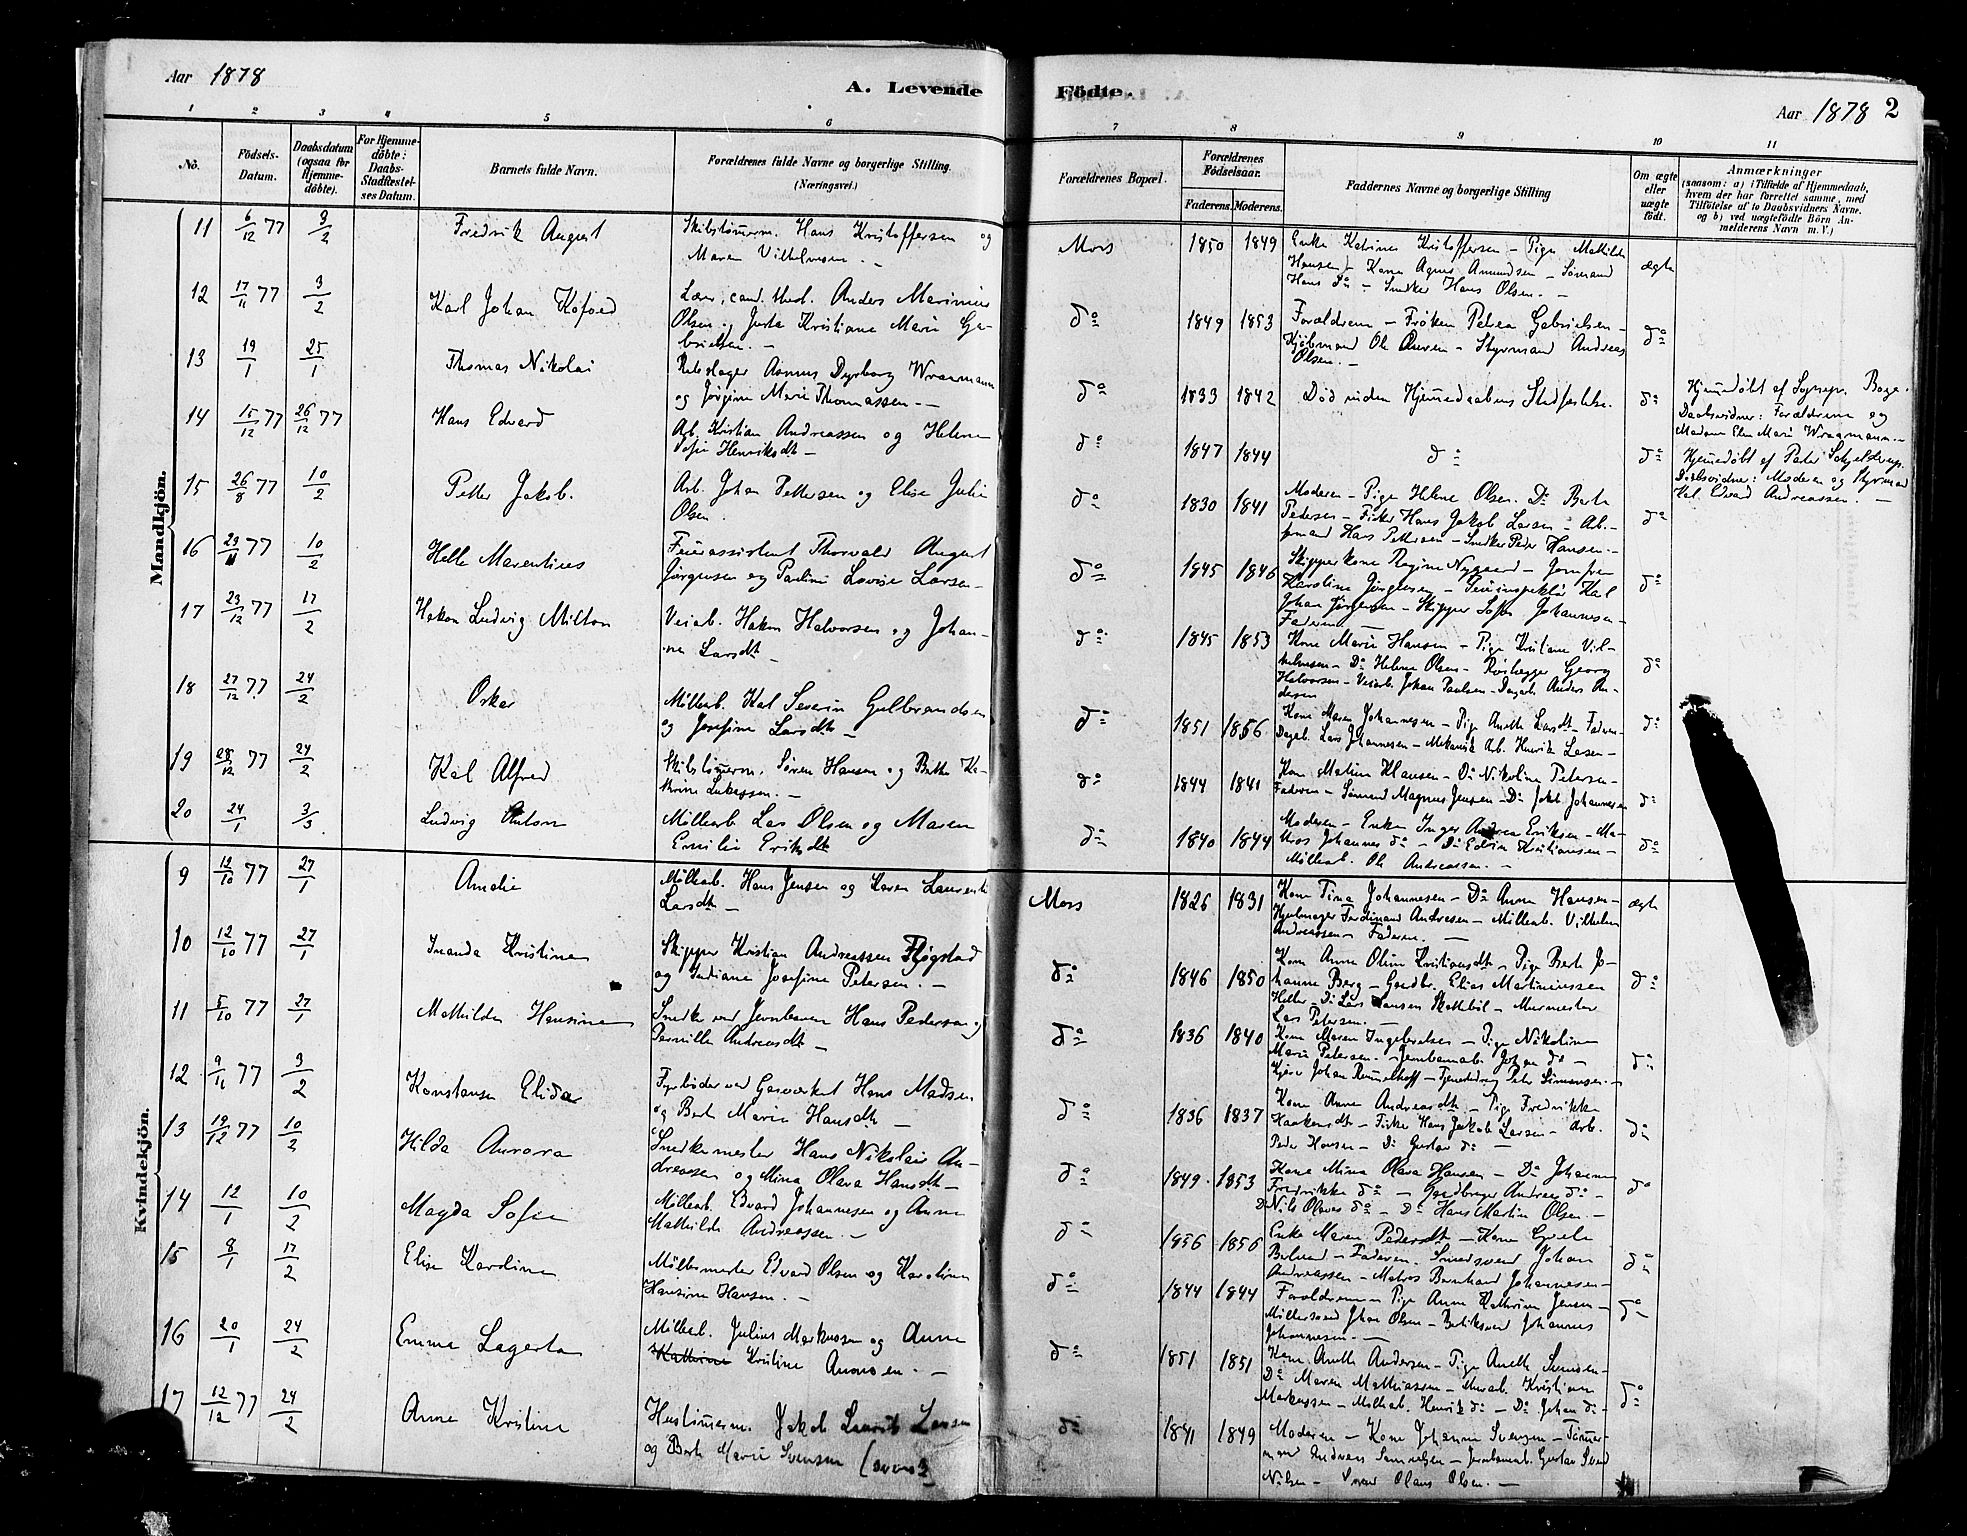 Aar 1878
A. Levende
Födte.
Aar 1878 2
1 2 3 4 5 6 7 8 9 10 11
No.
Födsels-
Datum.
Daabsdatum
(ogsaa for
Hjemme-
döbte).
For Hjemme-
döbte:
Daabs-
Stadfæstel-
ses Datum.
Barnets fulde Navn.
Forældrenes fulde Navne og borgerlige Stilling
(Næringsvei.)
Forældrenes Bopæl.
Forældrenes
Födselsaar.
Faderens. Moderens.
Faddernes Navne og borgerlige Stilling
Om ægte
eller
uægte
födt.
Anmærkninger
(saasom: a) i Tilfælde af Hjemmedaab,
hvem der har forrettet samme, med
Tilföielse af to Daabsvidners Navne.
og b) ved uægtefödte Börn An-
melderens Navn m. V.)
Mandkjön.
11 6/12 77 9/2 Fredrik August
Skibstømerm. Hans Kristoffersen og
Maren Vilhelmsen. -
Moss 1850 1849
Enke Katrine Kristoffersen - Pige Mathilde
Hansen - Kone Agnes Amundsen - Sømand
Hans Do - Snedker Hans Olsen. -
ægte
12 17/11 77 3/2 Karl Johan Kofoed
Lærer, cand. theol. Anders Marinius
Olsen og Jutta Kristiane Marie Ga-
brielsen. -
do 1849 1853
Forældrene - Frøken Petrea Gabrielsen -
Kjøbmand Ole Olsen - Styrmand Andreas
Olsen. -
do
13 19/1 25/1 Thomas Nikolai
Rebslager Asmus Dyrborg Wraamann
og Jørgine Marie Thomassen. -
do 1833 1842
Død inden Hjemmedaabens Stadfestelse.
do
Hjemmedøbt af Sognepr. Bage.
Daabsvidner: Forældrene og
Madam Elen Marie Wraamann. -
14 15/12 77 26/12 77 Hans Edvard
Arb. Kristian Andreassen og Helene
Sofie Henriksdt -
do 1847 1844
do
do
Hjemmedøbt af Pastor Schjelderup.
Daabsvidner: Moderen og Styrmand
Karl Edvard Andreassen. -
15 26/8 77 10/2 Petter Jakob.
Arb. Johan Pettersen og Elise Julie
Olsen.
do 1830 1841
Moderen - Pige Helene Olsen. Do Berte
Pedersen - Fisker Hans Jakob Larsen - Arb.-
formand Hans Pettersen - Snedker Peder Hansen. -
do
16 23/11 77 10/2 Helle Marentius
Feierassistent Thorvald August
Jørgensen og Pauline Lovise Larsen -
do 1845 1846
Skipperkone Regine Nygaard - Jomfru
Karoline Jørgensen - Feierinspektør Karl
Johan Jørgensen - Skipper Johannesen -
Faderen
do
17 23/12 77 17/2 Hakon Ludvig Milton
Veiarb. Hakon Halvorsen og Johan-
ne Larsdt -
do 1845 1853
Kone Marie Hansen - Pige Kristiane Vil-
helmsen - Do Helene Olsen - Rørlægger Georg
Halvorsen - Veiarb. Johan Paulsen - Dagarb. Anders An-
dersen
do
18 27/12 77 24/2 Oskar
Møllearb. Karl Severin Gulbrandsen
og Josefine Larsdt -
do 1851 1856
Kone Maren Johannesen - Pige Anette Larsdt - Faderen -
Dagarb. Lars Johannesen - Mekanisk Arb. Henrik Larsen -
do
19 28/12 77 24/2 Karl Alfred
Skibstømerm. Søren Hansen og Berthe Ka-
thrine Lukassen. -
do 1844 1841
Kone Matine Klausen - Do Nikoline Petersen -
Faderen - Sømand Magnus Jensen - Do Jakob Johannesen
do
20 24/1 3/3 Ludvig Anton
Møllearb. Lars Olsen og Maren
Emilie Eriksdt
do 1840 1844
Moderen - Enke Inger Andrea Eriksen - Ma-
tros Johannes do - Do Edvin Kristiansen -
Møllearb. Ole Andreassen. -
do
Kvindekjön.
9 12/10 77 27/1 Amalie
Møllearb. Hans Jensen og Karen Laurentse
Larsdt -
Moss 1826 1831
Kone Tina Johannesen - Do Anne Hansen -
Hjulmager Ferdinand Andresen - Møllearb. Vilhelm
Andreassen - Faderen. -
ægte
10 12/10 77 27/1 Inanda Kristine
Skipper Kristian Andreassen Flogstad
og Indiane Josefine Petersen. -
do 1846 1850
Kone Anne Oline Kristiansdt - Pige Berte Jo-
hanne Berg - Gaardbr. Elias Martiniussen
Heller - Do Lars Hansen Skattebøl - Murmester
Lars Petersen. -
do
11 5/10 77 27/1 Mathilde Hansine
Snedker ved Jernbanen Hans Pedersen og
Pernille Andreasdt -
do 1836 1840
Kone Maren Ingebretsen - Pige Nikoline
Marie Petersen. - Jernbanearb. Johan do -
Kjører Johan Rummelhoff - Tjenestedreng Peter Simonsen. -
do
12 9/11 77 3/2 Konstanse Elida
Fyrbøder ved Gasverket Hans Madsen
og Berte Marie Hansdt -
do 1836 1837
Kone Anne Andreasdt - Pige Fredrikke
Haakensdt - Fisker Hans Jakob Larsen - Arb.
Peder Hansen - Do Gustav do -
do
13 19/12 77 10/2 Hilda Aurora
Snedkermester Hans Nikolai An-
dreassen og Mina Olava Hansdt -
do 1849 1853
Kone Mina Olava Hansen - Do Johanne
Fredrikke do - Gaardbruger Andreas do -
Do Nils Olaves do - Do Hans Martin Olsen. -
do
14 12/1 10/2 Magda Sofie
Møllearb. Edvard Johannesen og Anne
Mathilde Andreassen. -
do 1856 1856
Enke Maren Pedersdt - Kone Grete
Bolund - Faderen. Smedsvend Johan
Andreassen - Matros Bernhard Johannesen -
do
15 8/1 17/2 Elise Karoline
Møllermester Edvard Olsen og Karoline
Hansine Hansen. -
do 1844 1844
Forældrene - Pige Anne Kathrine Jensen -
Møllersvend Johan Olsen - Johannes
Johannesen. -
do
16 20/1 24/2 Emma Lagerta
Møllearb. Julius Markussen og Anne
Kathrine Kristine Annesen. -
do 1851 1851
Kone Anette Andersen - Pige Anette Svensen -
Do Maren Mathiassen - Murarb. Kristian
Markussen - Møllearb. Henrik do - Do Johan do -
do
17 12/12 77 24/2 Anne Kristine
Hustømerm. Jakob Laurits Larsen
og Berte Marie Svensen
do 1841 1849
Moderen - Kone Johanne Svensen - Tømmer-
mand Andreas Samuelsen - Jernbanearb. Gustav
Nilsen - Svend Olaus Olsen. -